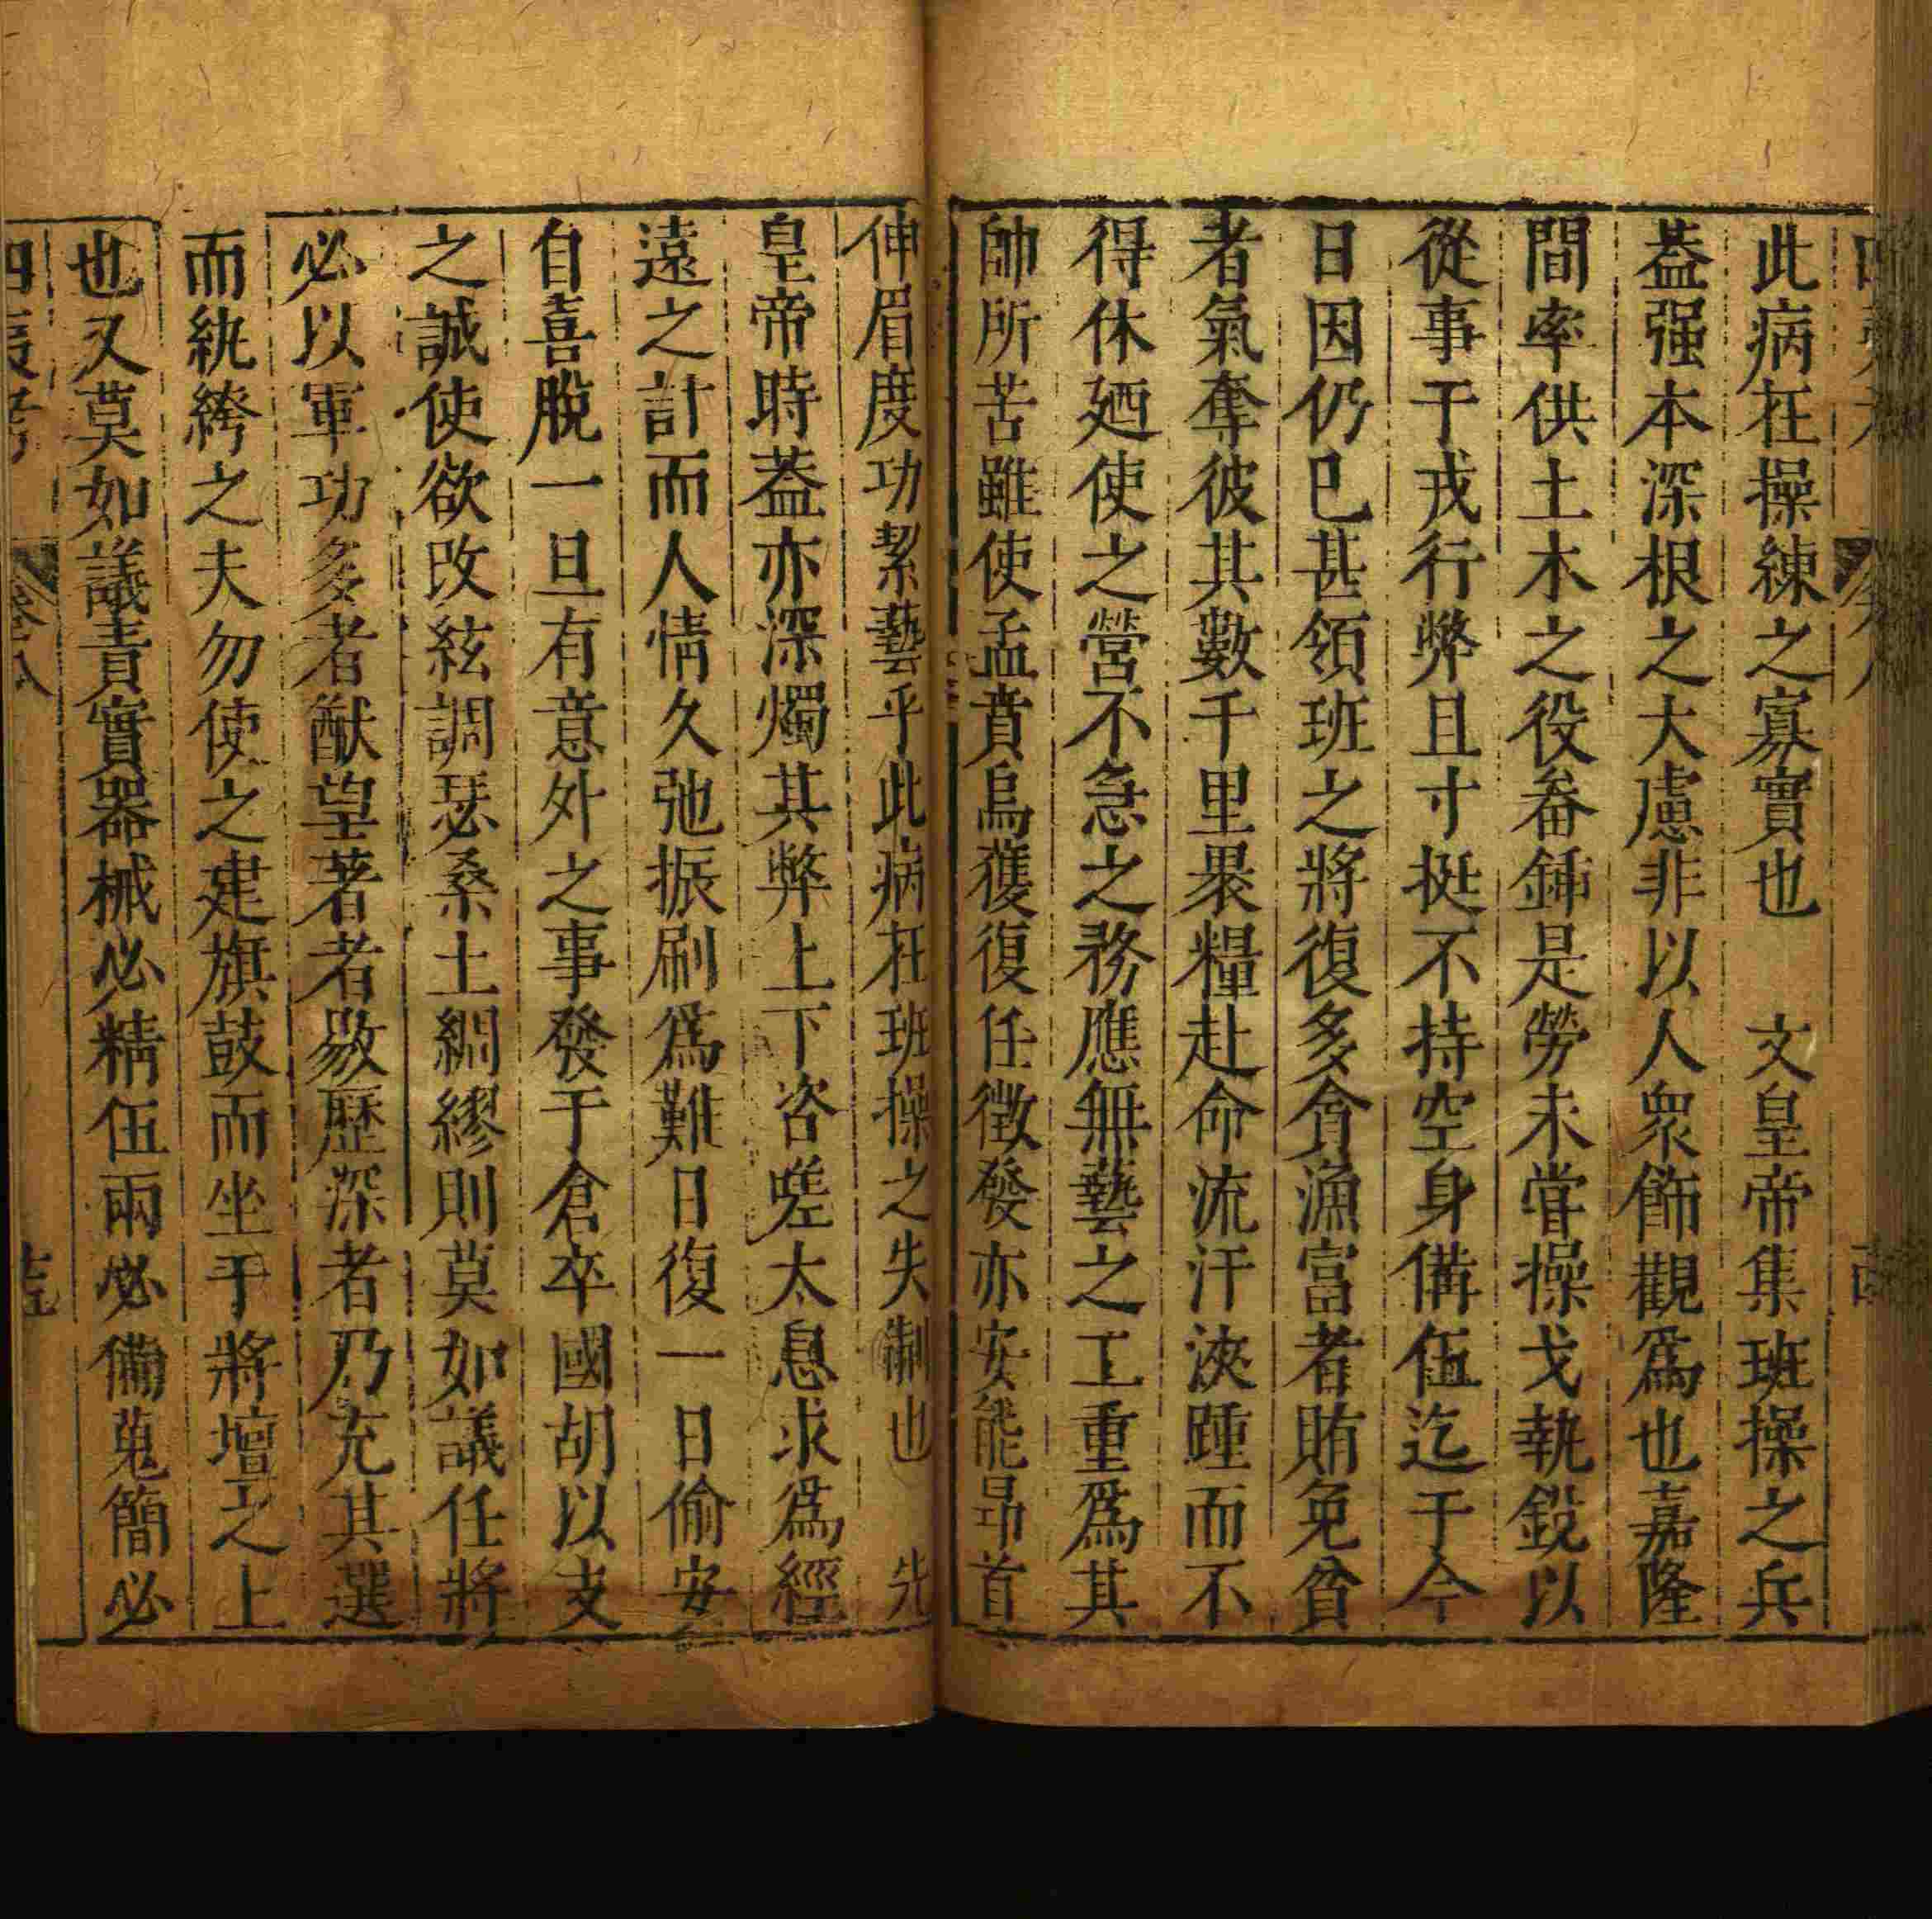 此病在操練之寡實也　文皇帝集班操之兵
葢强本深根之大慮非以人衆飾觀爲也嘉隆
間率供土木之役畚鍤是勞未甞操戈執銳以
從事于戎行弊且寸挺不持空身備伍迄于今
日因仍已甚領班之將復多貪漁富者賄免貧
者氣奪彼其數千里褁糧赴命流汗浹踵而不
得休廼使之營不急之務應無藝之工重爲其
帥所苦雖使孟賁烏獲復任徵發亦安能昂首
伸眉度功絜藝乎此病在班操之失制也　先
皇帝時葢亦深燭其弊上下咨嗟太息求爲經
遠之計而人情久弛振刷爲難日復一日偷安
自喜脫一旦有意外之事發于倉卒國胡以支
之誠使欲改絃調瑟桑土綢繆則莫如議任將
必以軍功多者猷望著者敭歷深者乃充其選
而紈綺之夫勿使之建旗鼓而坐于將壇之上
也又莫如議責實器械必精伍兩必備蒐簡必
四夷考　卷八　十五